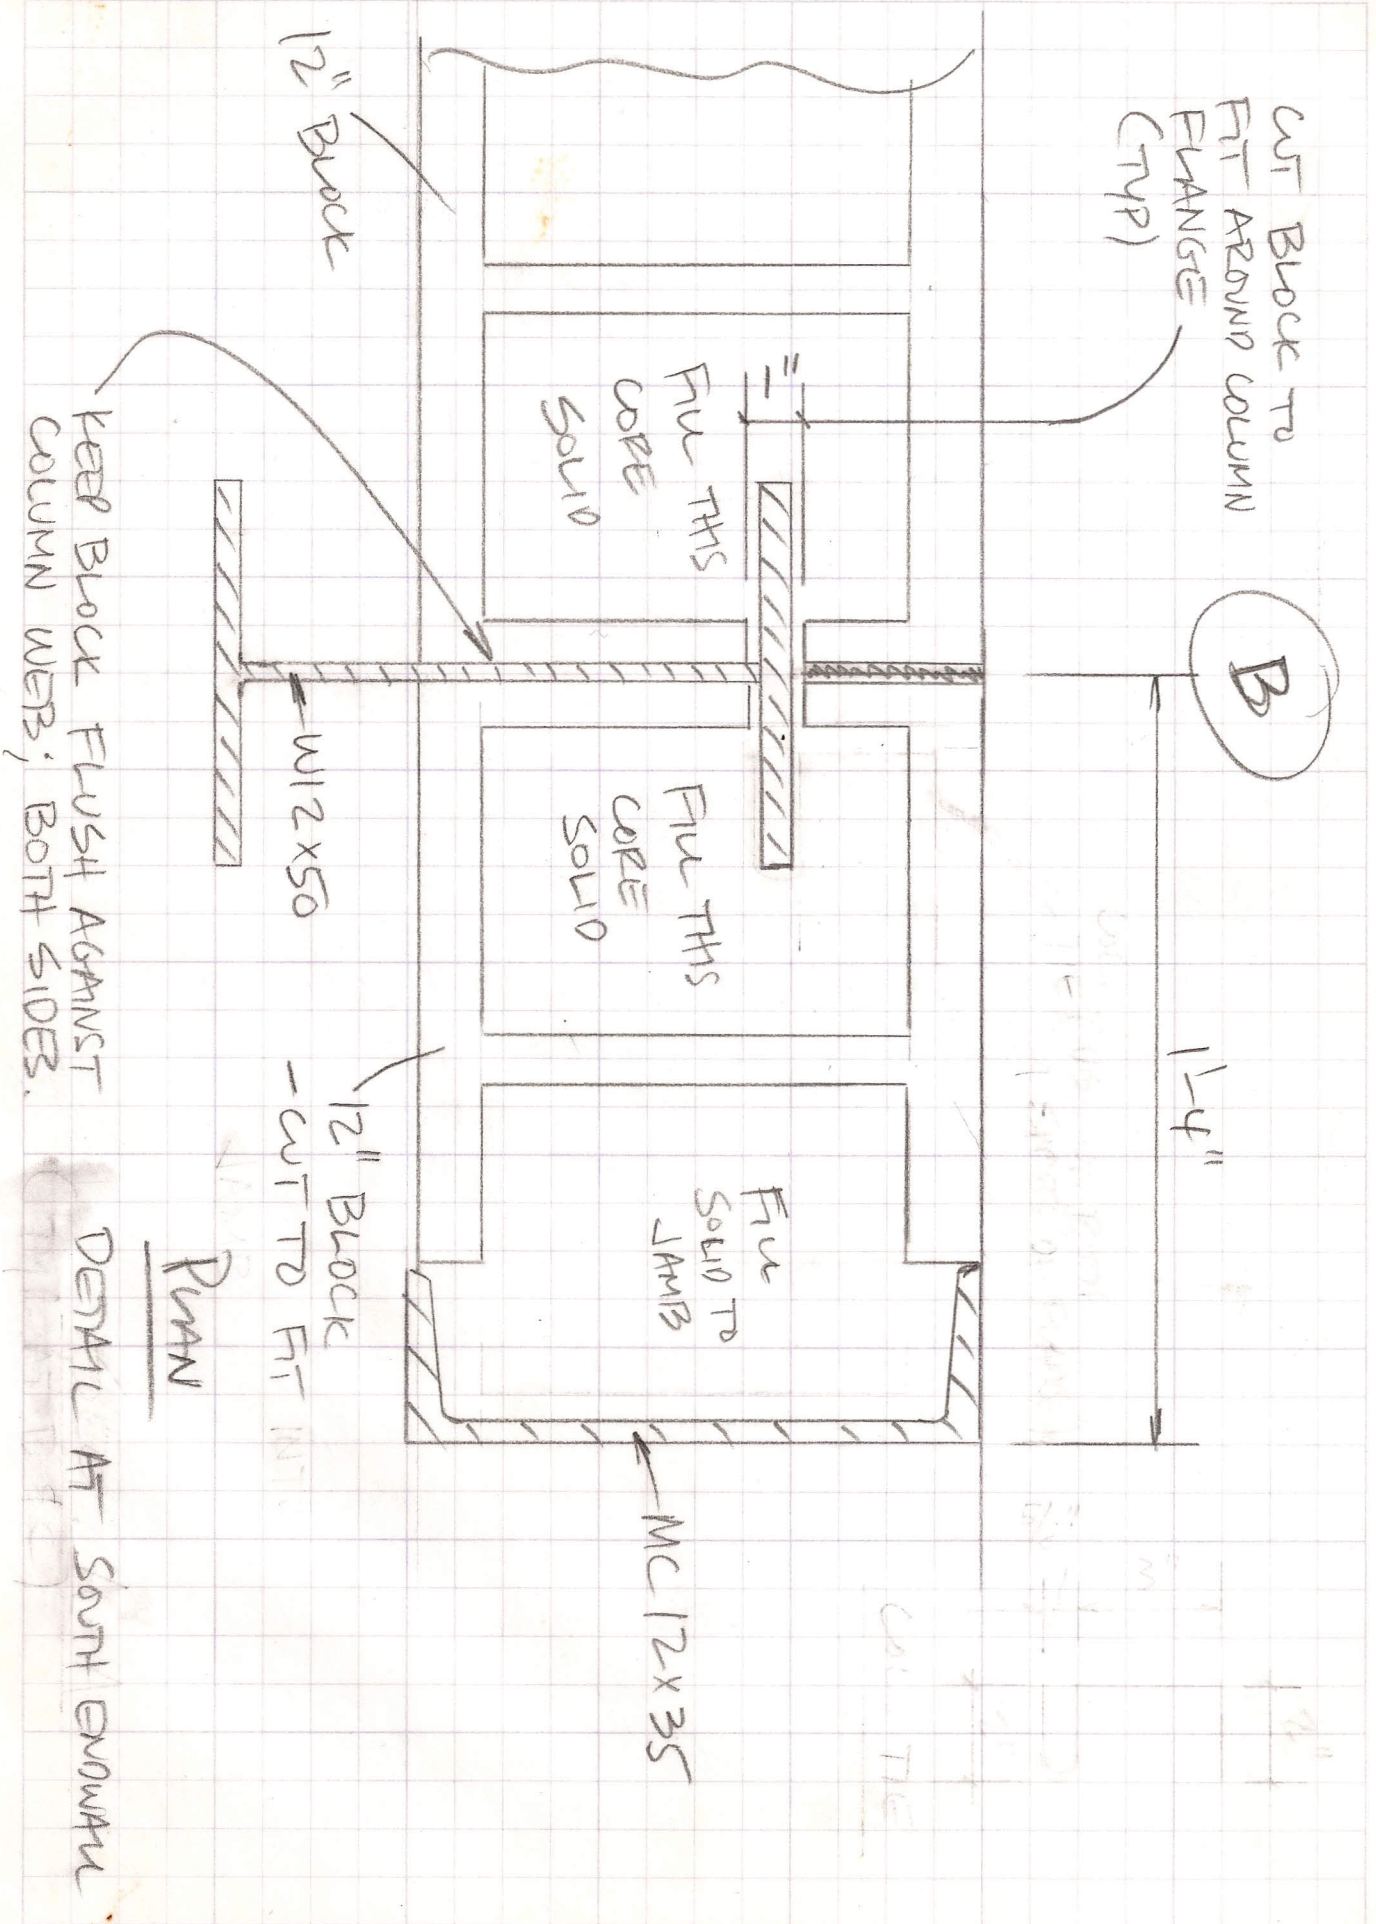 CUT BLOCK TO
FIT AROUND COLUMN
FLANGE
(TYP)
B
1'-4"
12" BLOCK
1"
FILL THIS
CORE
SOLID
FILL THIS
CORE
SOLID
FILL
SOLID TO
JAMB
MC 12x35
W12x50
12" BLOCK
- CUT TO FIT
KEEP BLOCK FLUSH AGAINST
COLUMN WEB; BOTH SIDES.
PLAN
DETAIL AT SOUTH ENDWALL